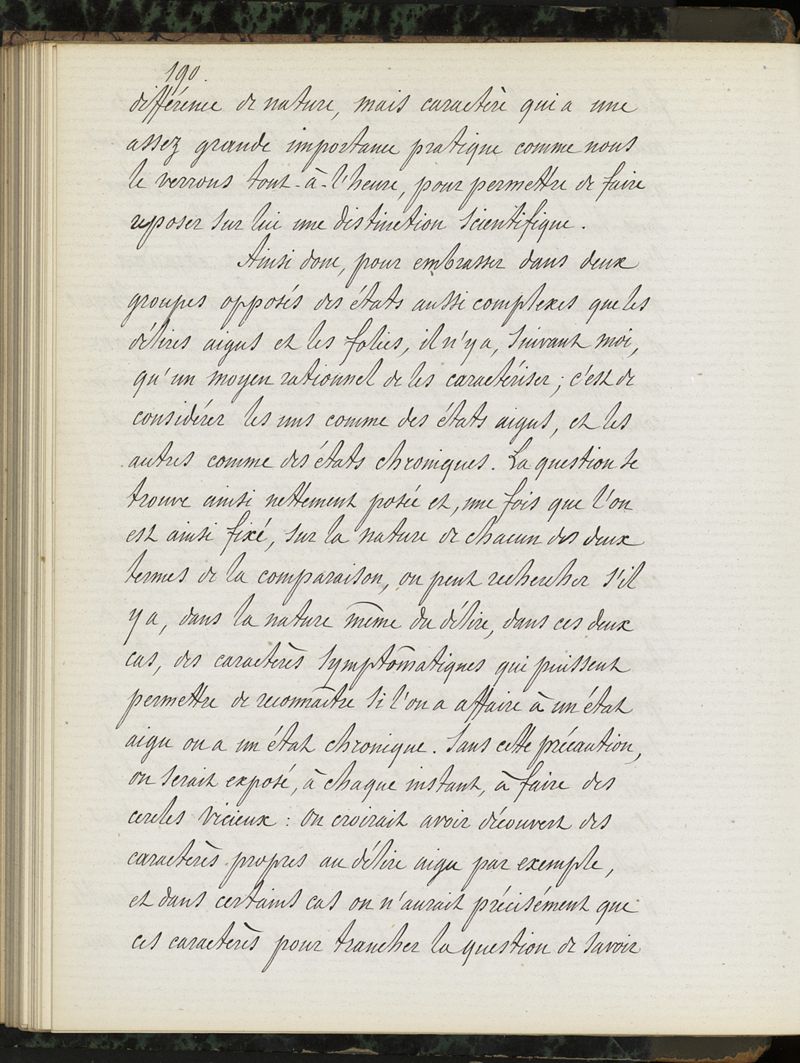 190.
différence de nature, mais caractère qui a une
assez grande importance pratique comme nous
le verrons tout-à-l'heure, pour permettre de faire
reposer sur lui une distinction scientifique.
Ainsi donc, pour embrasser dans deux
groupes opposés des états aussi complexes que les
délires aigus et les folies, il n'y a, suivant moi,
qu'un moyen rationnel de les caractériser ; c'est de
considérer les uns comme des états aigus, et les
autres comme des états chroniques. La question se
trouve ainsi nettement posée et, une fois que l'on
est ainsi fixé, sur la nature de chacun des deux
termes de la comparaison, on peut rechercher s'il
y a, dans la nature même du délire, dans ces deux
cas, des caractères symptômatiques qui puissent
permettre de reconnaître si l'on a affaire à un état
aigu ou a un état chronique. Sans cette précaution,
on serait exposé, à chaque instant, à faire des
cercles vicieux : on croirait avoir découvert des
caractères propres au délire aigu par exemple,
et dans certains cas on n'aurait précisément que
ces caractères pour trancher la question de savoir